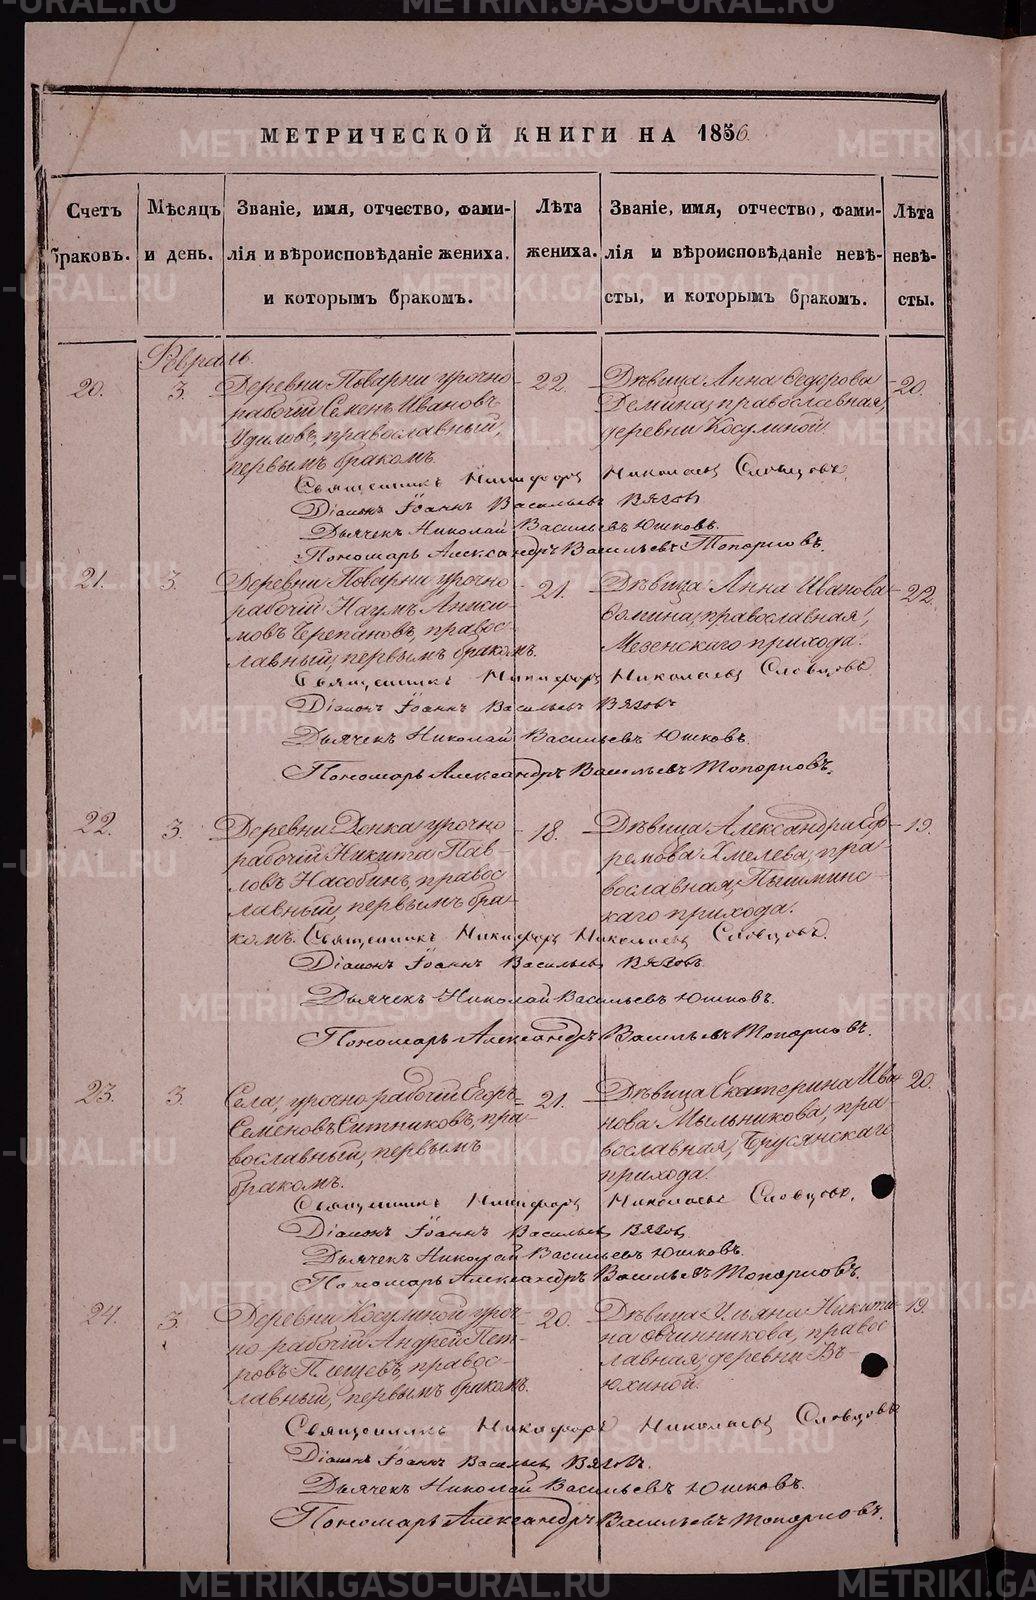 МЕТРИЧЕСКОЙ КНИГИ НА 1856.
Счетъ браковъ.
Мѣсяцъ и день.
Званіе, имя, отчество, фами-
лія и вѣроисповѣданіе жениха,
и которымъ бракомъ.
Лѣта жениха.
Званіе, имя, отчество, фами-
лія и вѣроисповѣданіе невѣ-
сты, и которымъ бракомъ.
Лѣта невѣ-
сты.
Февраль.
20.
3.
Деревни Поварни урочно
рабочій Семенъ Ивановъ
Удиловъ, православный,
первымъ бракомъ.
22.
Дѣвица Анна Ѳедорова
Демина, православная,
деревни Косулиной.
20.
Священникъ Никифоръ Николаевъ Словцовъ.
Діаконъ Іоаннъ Васильевъ Вязовъ
Дьячекъ Николай Васильевъ Юшковъ.
Пономарь Александръ Васильевъ Топорковъ.
21.
3.
Деревни Поварни урочно
рабочій Наумъ Аниси-
мовъ Черепановъ, правос-
лавный, первымъ бракомъ.
21.
Дѣвица Анна Иванова
Ѳомина, православная,
Мезенскаго прихода.
22.
Священникъ Никифоръ Николаевъ Словцовъ
Діаконъ Іоаннъ Васильевъ Вязовъ
Дьячекъ Николай Васильевъ Юшковъ.
Пономарь Александръ Васильевъ Топорковъ.
22.
3.
Деревни урочно
рабочій Никита Пав-
ловъ Насобинъ, правос
лавный, первымъ бра-
комъ.
18.
Дѣвица Александра Еф-
ремова Хмелева, пра-
вославная, Пышминс-
каго прихода.
19.
Священникъ Никифоръ Николаевъ Словцовъ.
Діаконъ Іоаннъ Васильевъ Вязовъ.
Дьячекъ Николай Васильевъ Юшковъ.
Пономарь Александръ Васильевъ Топорковъ.
23.
3.
Села, урочно-рабочій Егоръ
Семеновъ Ситниковъ, пра-
вославный, первымъ
бракомъ.
21.
Дѣвица Екатерина Ива-
нова Мыльникова, пра-
вославная, Брусянскаго
прихода.
20.
Священникъ Никифоръ Николаевъ Словцовъ.
Діаконъ Іоаннъ Васильевъ Вязовъ
Дьячекъ Николай Васильевъ Юшковъ.
Пономарь Александръ Васильевъ Топорковъ.
24.
3.
Деревни Косулиной уроч-
но рабочій Андрей Пет-
ровъ Плещевъ, правос-
лавный, первымъ бракомъ.
20.
Дѣвица Ульяна Никити-
на Овчинникова, правос
лавная, деревни Въ-
юхиной.
19.
Священникъ Никифоръ Николаевъ Словцовъ
Діаконъ Іоаннъ Васильевъ Вязовъ.
Дьячекъ Николай Васильевъ Юшковъ.
Пономарь Александръ Васильевъ Топорковъ.
METRIKI.GASO-URAL.RU